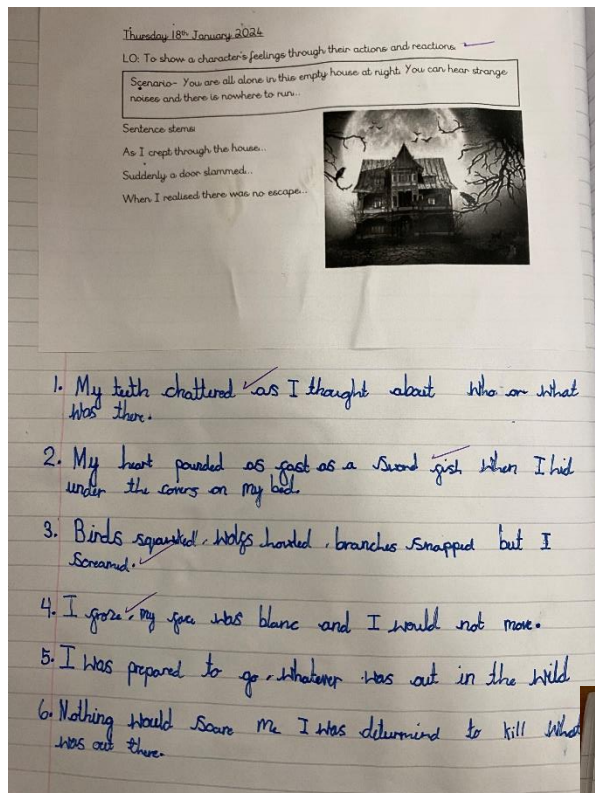 Thursday 18th January 2024
LO: To show a character's feelings through their actions and reactions
Scenario- You are all alone in this empty house at night. You can hear strange
noises and there is nowhere to run...
Sentence stems:
As I crept through the house...
Suddenly a door slammed...
When I realised there was no escape...
1. My teeth chattered as I thought about who or what
was there.
2. My heart pounded as fast as a sword fish when I hid
under the covers on my bed.
3. Birds squawked, wolfs howled, branches snapped but I
screamed.
4. I froze, my face was blanc and I would not move.
5. I was prepared to go, whatever was out in the wild
6. Nothing would scare me I was determind to kill what
was out there.